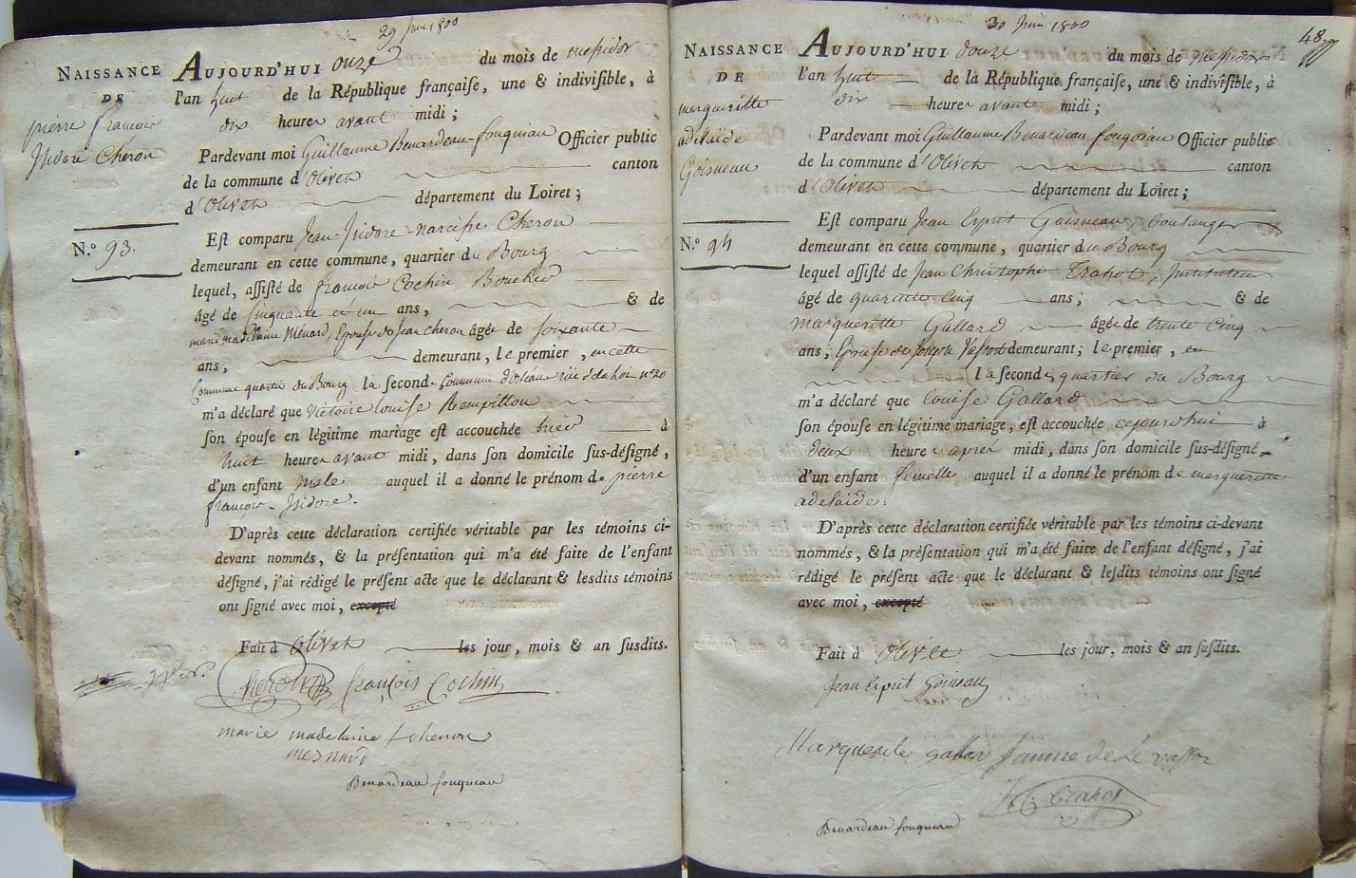 29 Juin 1800
NAISSANCE
DE
pierre francois
Isidore Cheron
N.º 93.
AUJOURD'HUI onze du mois de messidor
l'an huit de la République françaiſe, une & indiviſible, à
dix heures avant midi ;
Pardevant moi Guillaume Benardeau-fouqueau Officier public
de la commune d'Olivet canton
d'Olivet département du Loiret ;
Eſt comparu Jean-Isidore-narcisse Cheron
demeurant en cette commune, quartier du Bourg
lequel, aſſiſté de francois Cochin Boucher
âgé de Cinquante et un ans, & de
marie madelaine Ménard, Epouse de Jean Cheron âgée de soixante
ans, demeurant, le premier, en cette
Commune quartier du Bourg la seconde Commune d'Orléans rue n.º 20
m'a déclaré que victoire Louise Rempillon
ſon épouſe en légitime mariage eſt accouchée hier à
huit heures avant midi, dans ſon domicile ſus-déſigné,
d'un enfant male auquel il a donné le prénom de pierre
francois-Isidore.
D'après cette déclaration certifiée véritable par les témoins ci-
devant nommés, & la préſentation qui m'a été faite de l'enfant
déſigné, j'ai rédigé le préſent acte que le déclarant & leſdits témoins
ont ſigné avec moi, excepté
Fait à Olivet les jour, mois & an ſuſdits.
françois Cochin
marie madelaine
Benardeau fouqueau
30 Juin 1800
48
NAISSANCE
DE
margueritte
adelaide
Goisneau
N.º 94
AUJOURD'HUI douze du mois de messidor
l'an huit de la République françaiſe, une & indiviſible, à
dix heures avant midi ;
Pardevant moi Guillaume Benardeau fouqueau Officier public
de la commune d'Olivet canton
d'Olivet département du Loiret ;
Eſt comparu Jean Esprit Goisneau, boulanger
demeurant en cette commune, quartier du Bourg
lequel aſſiſté de Jean Christophe Trahot, Instituteur
âgé de quarante cinq ans ; & de
margueritte Gallard âgée de trente cinq
ans, Epouse de Joseph demeurant ; le premier, en
la seconde quartier du Bourg
m'a déclaré que Louise Gallard
ſon épouſe en légitime mariage, eſt accouchée cejourd'hui à
deux heures après midi, dans ſon domicile ſus-déſigné
d'un enfant femelle auquel il a donné le prénom de margueritte
adelaide.
D'après cette déclaration certifiée véritable par les témoins ci-devant
nommés, & la préſentation qui m'a été faite de l'enfant déſigné, j'ai
rédigé le préſent acte que le déclarant & leſdits témoins ont ſigné
avec moi, excepté
Fait à Olivet les jour, mois & an ſuſdits.
Jean Esprit Goisneau
Marguerite galar famme de Le vassor
Trahot
Benardeau fouqueau